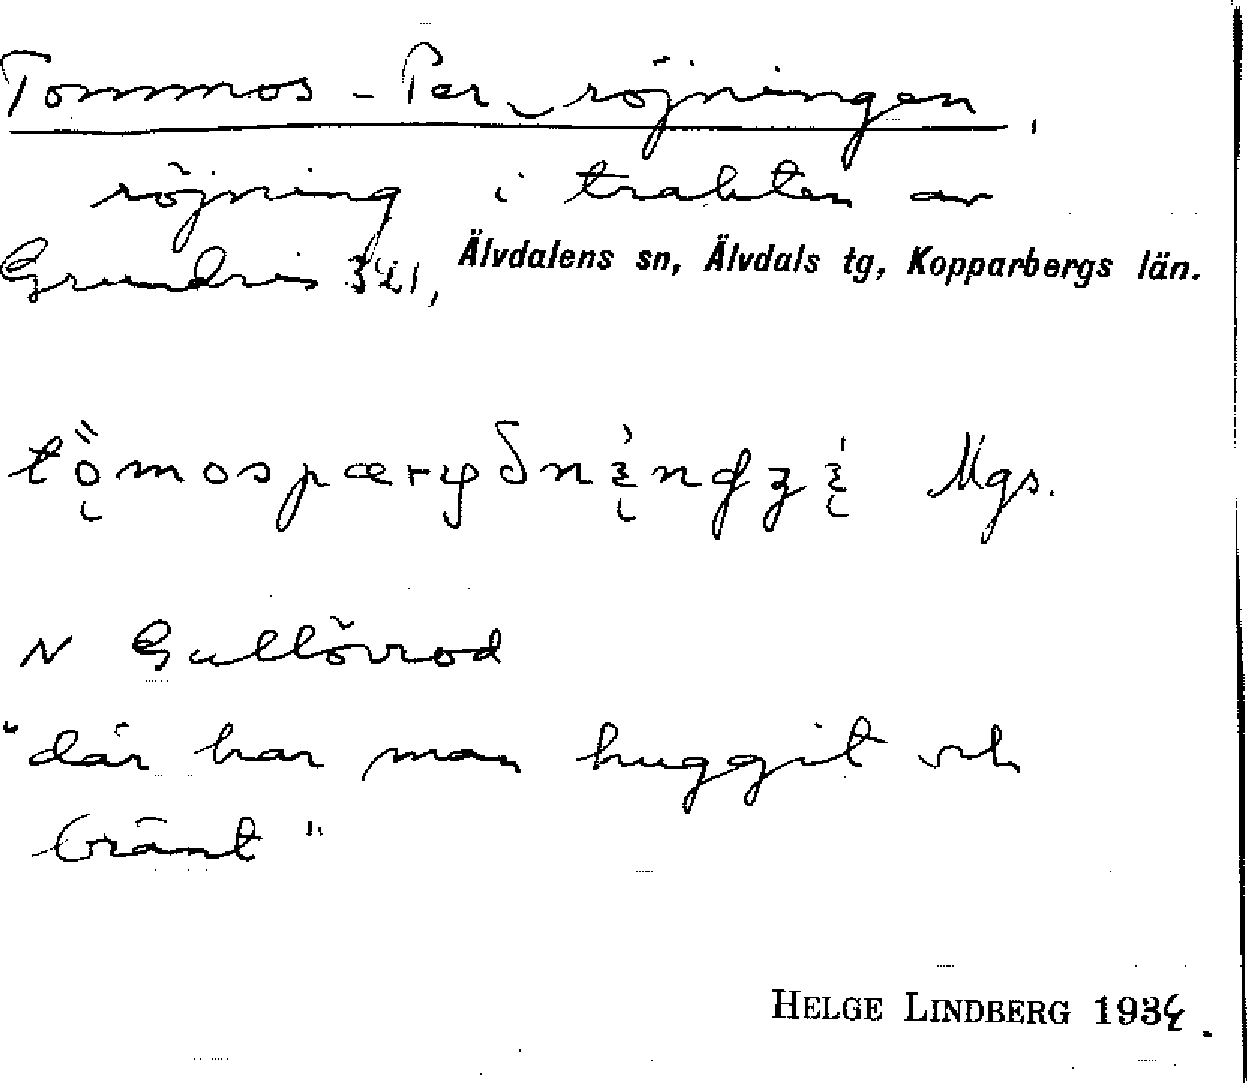 Tommos-Per röjningen,
röjning i trakten av
Grundris 341, Älvdalens sn, Älvdals tg, Kopparbergs län.
Mgs.
N Gullövrod
"där har man huggit och
bränt"
HELGE LINDBERG 1934.